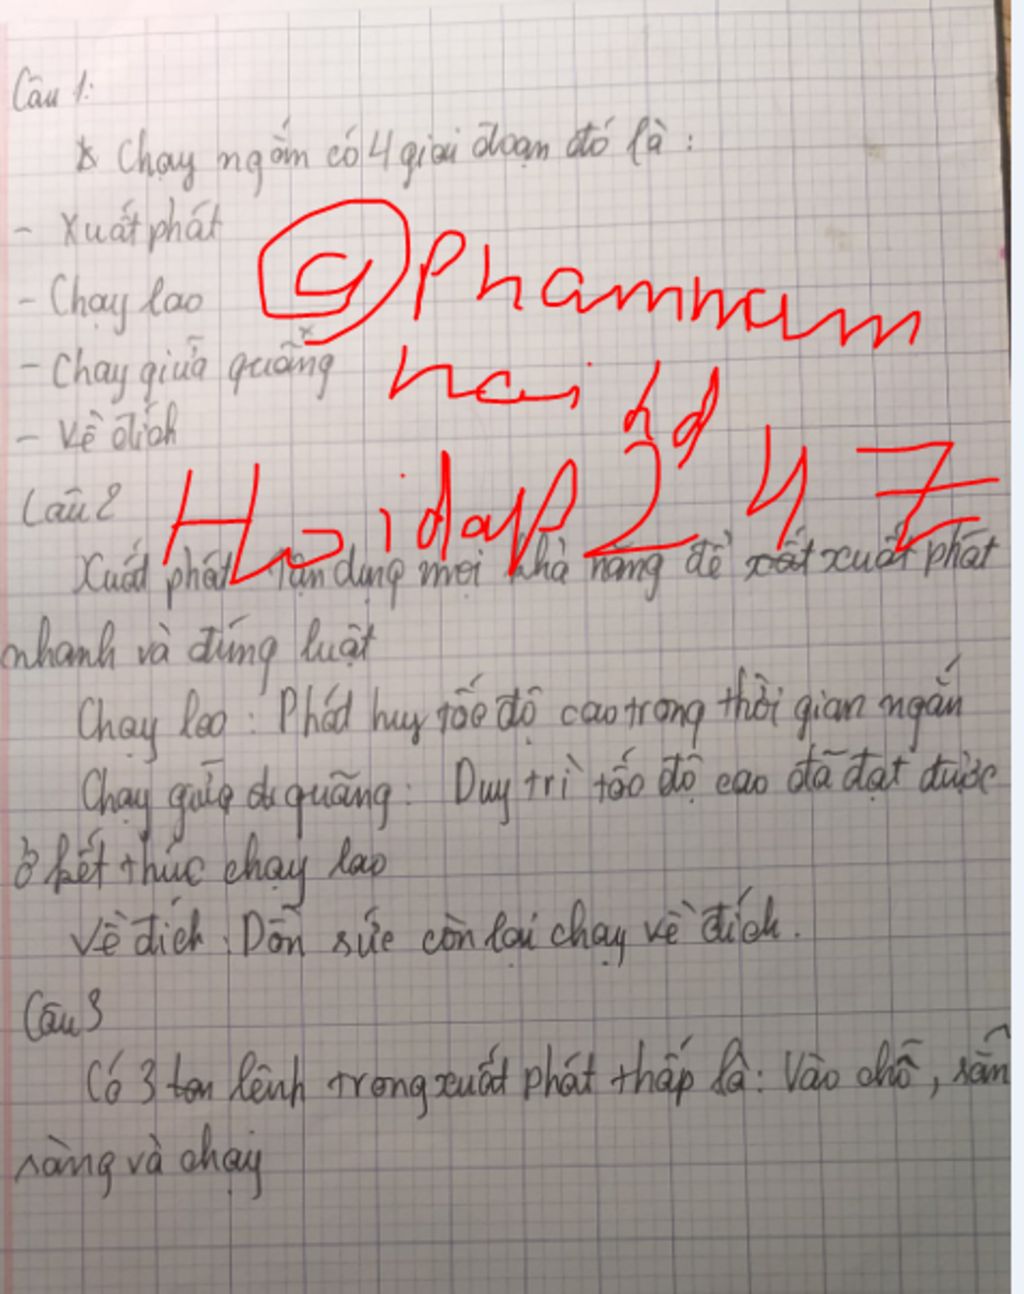 Câu 1:
* Chạy ngắn có 4 giai đoạn đó là:
- Xuất phát
@Phamnam
- Chạy lao
- Chạy giữa quãng
hai hd
- Về đích
Hoidap247
Câu 2
Xuất phát: Tận dụng mọi khả năng để xuất phát
nhanh và đúng luật
Chạy lao: Phát huy tốc độ cao trong thời gian ngắn
Chạy giữa quãng: Duy trì tốc độ cao đã đạt được
ở kết thúc chạy lao
Về đích: Dồn sức còn lại chạy về đích.
Câu 3
Có 3 lệnh trong xuất phát thấp là: Vào chỗ, sẵn
sàng và chạy